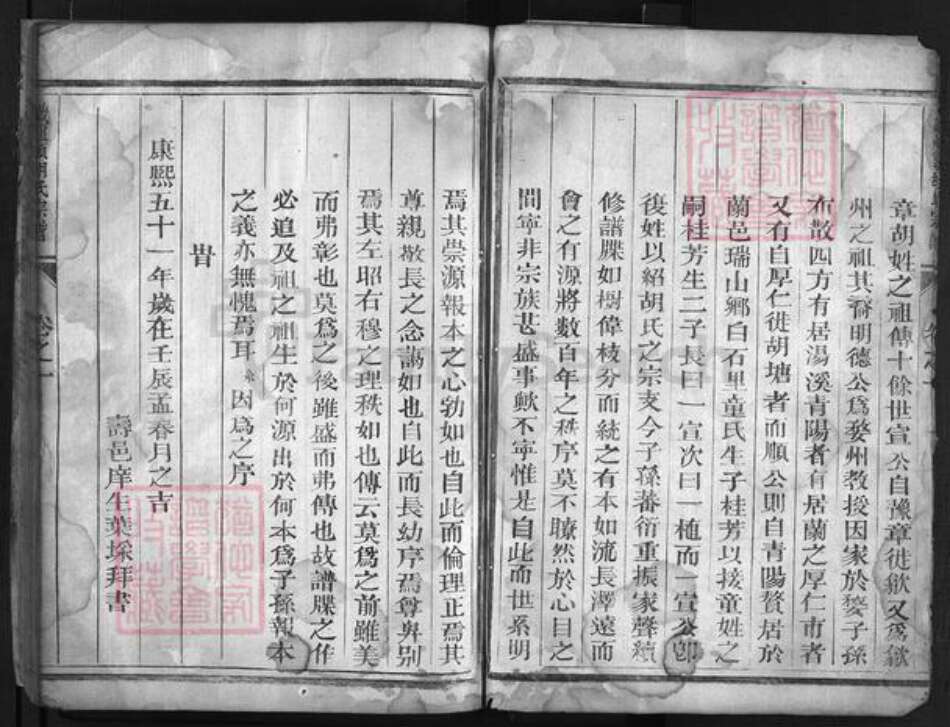 章胡姓之祖傳十餘世宣公自豫章徙歙又為歙
州之祖其裔明德公為婺州教授因家於婺子孫
布散四方有居湯溪青陽者有居蘭之厚仁市者
又有自厚仁徙胡塘者而順公則自青陽贅居於
蘭邑瑞山鄉白石里童氏生子桂芳以接童姓之
嗣桂芳生二子長曰一宣次曰一樋而一宣公卽
復姓以紹胡氏之宗支今子孫蕃衍重振家聲續
修譜牒如樹偉枝分而統之有本如流長澤遠而
會之有源將數百年之秩序莫不瞭然於心目之
間寧非宗族甚盛事歟不寧惟是自此而世系明
焉其崇源報本之心勃如也自此而倫理正焉其
尊親敬長之念藹如也自此而長幼序焉尊卑別
焉其左昭右穆之理秩如也傳云莫為之前雖美
而弗彰也莫為之後雖盛而弗傳也故譜牒之作
必追及祖之祖生於何源出於何本為子孫報本
之義亦無愧焉耳 因為之序
旹
康熙五十一年歲在壬辰孟春月之吉
壽邑庠生葉埰拜書
胡氏宗譜
卷之一